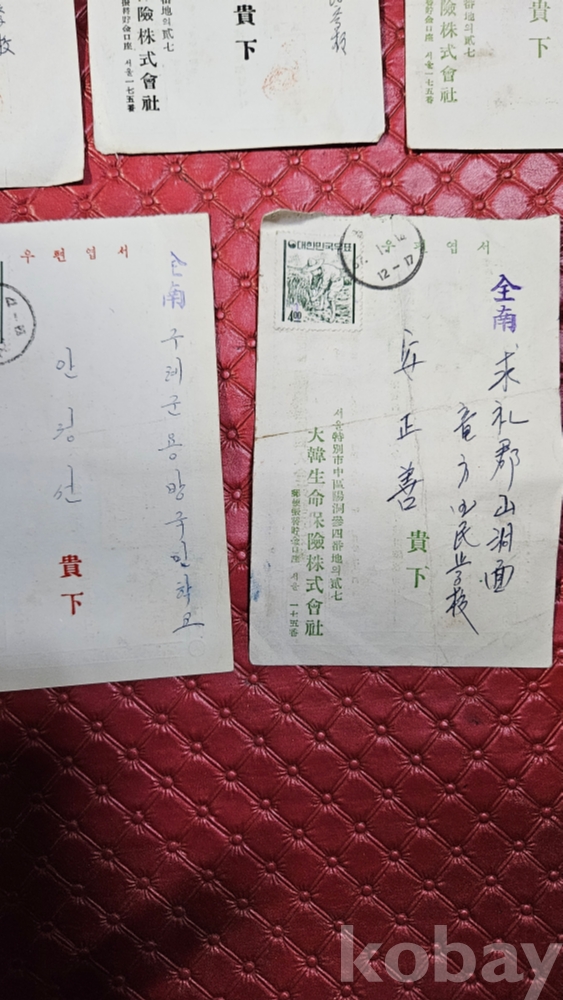 貴下
險株式會社
서울一七五番
番地의貳七
貴下
險株式會社
番地의貳七
口座 서울一七五番
貴下
우편엽서
全南
구례군용방국민학교
안정선
貴下
우편엽서
대한민국우표
4.00
12-17
全南
求礼郡山洞面
國民學校
安正善
貴下
서울特別市中區陽洞參四番地의貳七
大韓生命保險株式會社
서울 一七五番
kobay